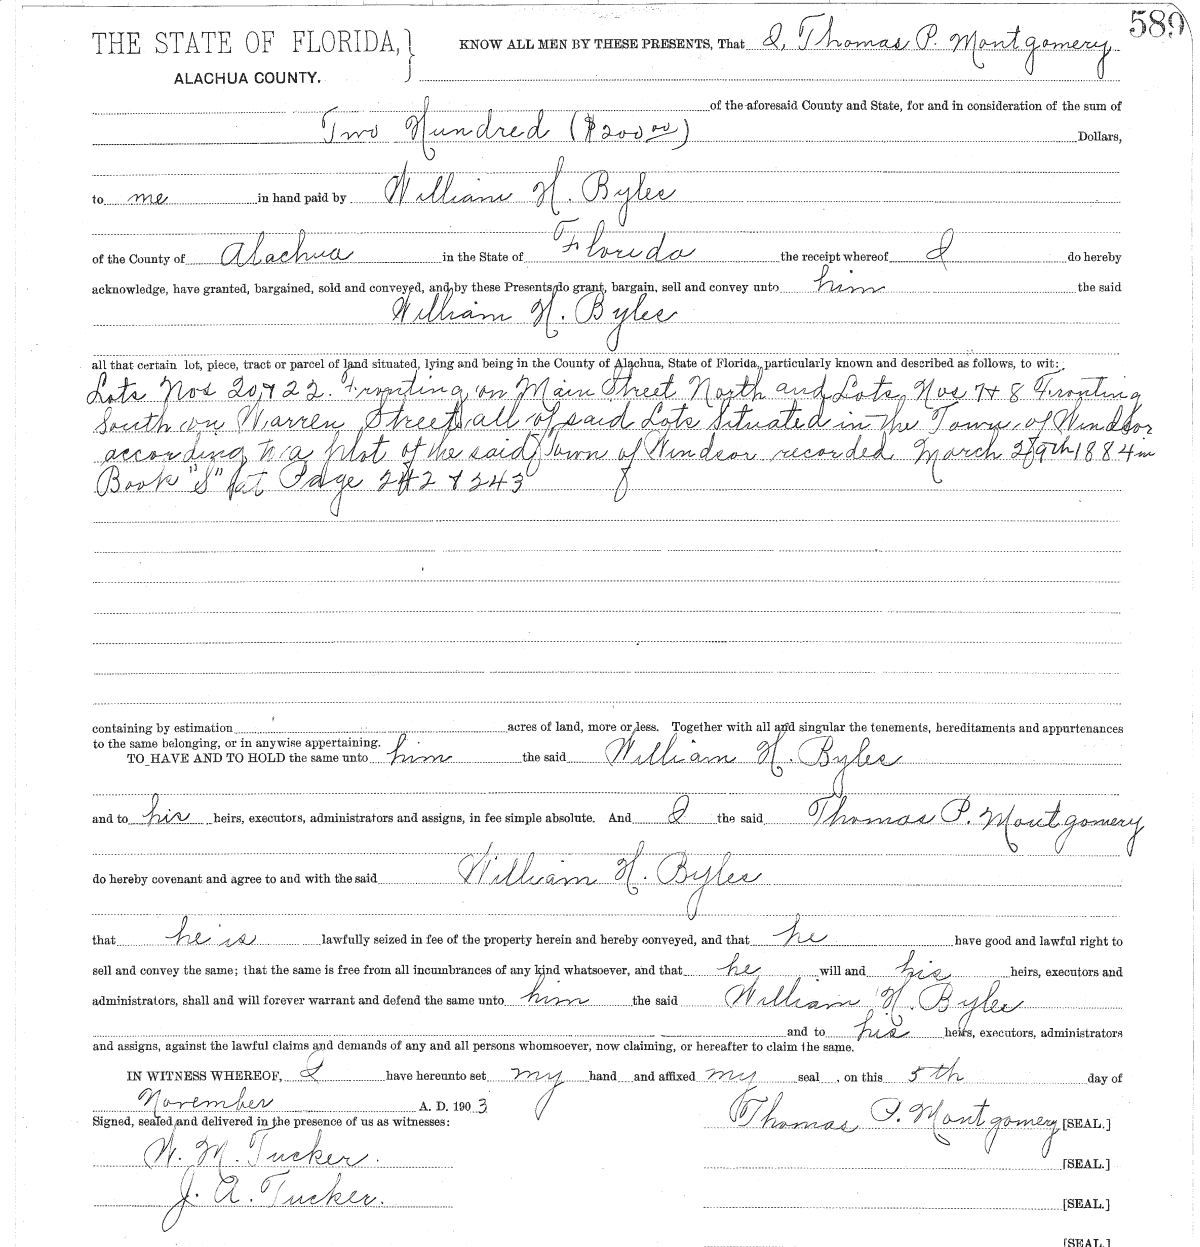 589
THE STATE OF FLORIDA, } KNOW ALL MEN BY THESE PRESENTS, That I, Thomas P. Montgomery
ALACHUA COUNTY.
of the aforesaid County and State, for and in consideration of the sum of
Two Hundred ($200 00) Dollars,
to me in hand paid by William H. Byles
of the County of Alachua in the State of Florida the receipt whereof I do hereby
acknowledge, have granted, bargained, sold and conveyed, and by these Presents do grant, bargain, sell and convey unto him the said
William H. Byles
all that certain lot, piece, tract or parcel of land situated, lying and being in the County of Alachua, State of Florida, particularly known and described as follows, to wit:
Lots Nos 20 & 22. Fronting on Main Street North and Lots Nos 7 & 8 Fronting
South on Warren Street all of said Lots Situated in the Town of Windsor
according to a plot of the said Town of Windsor recorded March 29th 1884 in
Book "S" at Page 242 & 243
containing by estimation acres of land, more or less. Together with all and singular the tenements, hereditaments and appurtenances
to the same belonging, or in anywise appertaining.
TO HAVE AND TO HOLD the same unto him the said William H. Byles
and to his heirs, executors, administrators and assigns, in fee simple absolute. And I the said Thomas P. Montgomery
do hereby covenant and agree to and with the said William H. Byles
that he is lawfully seized in fee of the property herein and hereby conveyed, and that he have good and lawful right to
sell and convey the same; that the same is free from all incumbrances of any kind whatsoever, and that he will and his heirs, executors and
administrators, shall and will forever warrant and defend the same unto him the said William H. Byles
and to his heirs, executors, administrators
and assigns, against the lawful claims and demands of any and all persons whomsoever, now claiming, or hereafter to claim the same.
IN WITNESS WHEREOF, I have hereunto set my hand and affixed my seal , on this 5th day of
November A. D. 1903
Signed, sealed and delivered in the presence of us as witnesses: Thomas P. Montgomery [SEAL.]
W. M. Tucker. [SEAL.]
J. A. Tucker. [SEAL.]
[SEAL.]